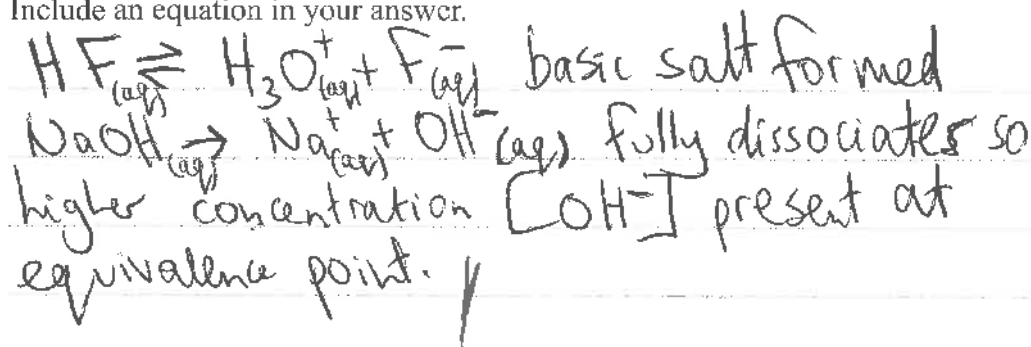 Include an equation in your answer.
HF(aq) ⇌ H₃O⁺(aq) + F⁻(aq) basic salt formed
NaOH(aq) → Na⁺(aq) + OH⁻(aq) fully dissociates so
higher concentration [OH⁻] present at
equivalence point.